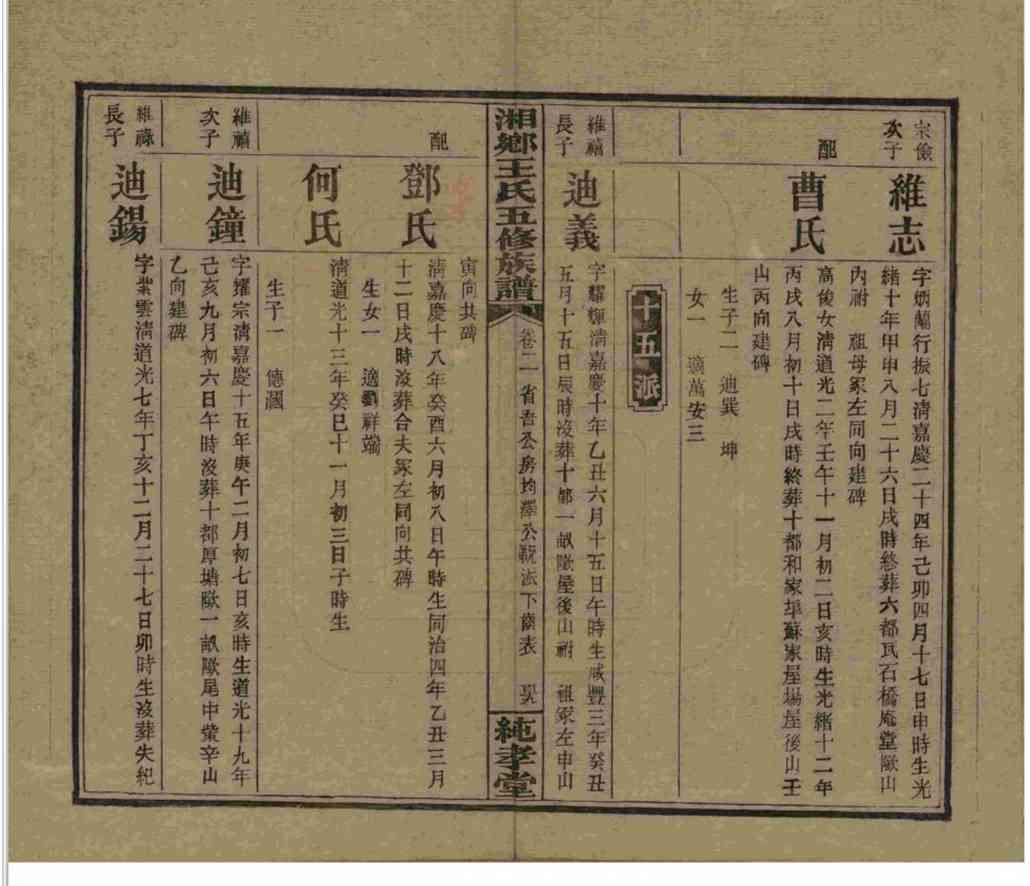 宗儉
次子
維志
字炳蘭行振七清嘉慶二十四年己卯四月十七日申時生光
緒十年甲申八月二十六日戌時終葬六都瓦石橋庵堂㘰山
內祔 祖母冢左同向建碑
配
曹氏
高俊女清道光二年壬午十一月初二日亥時生光緒十二年
丙戌八月初十日戌時終葬十都和家埠蘇家屋場屋後山壬
山丙向建碑
生子二 迪巽 坤
女一 適萬安三
十五派
維禧
長子
迪義
字耀輝清嘉慶十年乙丑六月十五日午時生咸豐三年癸丑
五月十五日辰時沒葬十都一畝㘰屋後山祔 祖冢左申山
湘鄉王氏五修族譜
卷二 省吾公房均澤公
下齒表
純孝堂
寅向共碑
配
鄧氏
清嘉慶十八年癸酉六月初八日午時生同治四年乙丑三月
十二日戌時沒葬合夫冢左同向共碑
生女一 適劉祥端
何氏
清道光十三年癸巳十一月初三日子時生
生子一 德
維禧
次子
迪鐘
字耀宗清嘉慶十五年庚午二月初七日亥時生道光十九年
己亥九月初六日午時沒葬十都厚塘㘰一畝㘰尾中螢辛山
乙向建碑
維祿
長子
迪錫
字業雲清道光七年丁亥十二月二十七日卯時生沒葬失紀